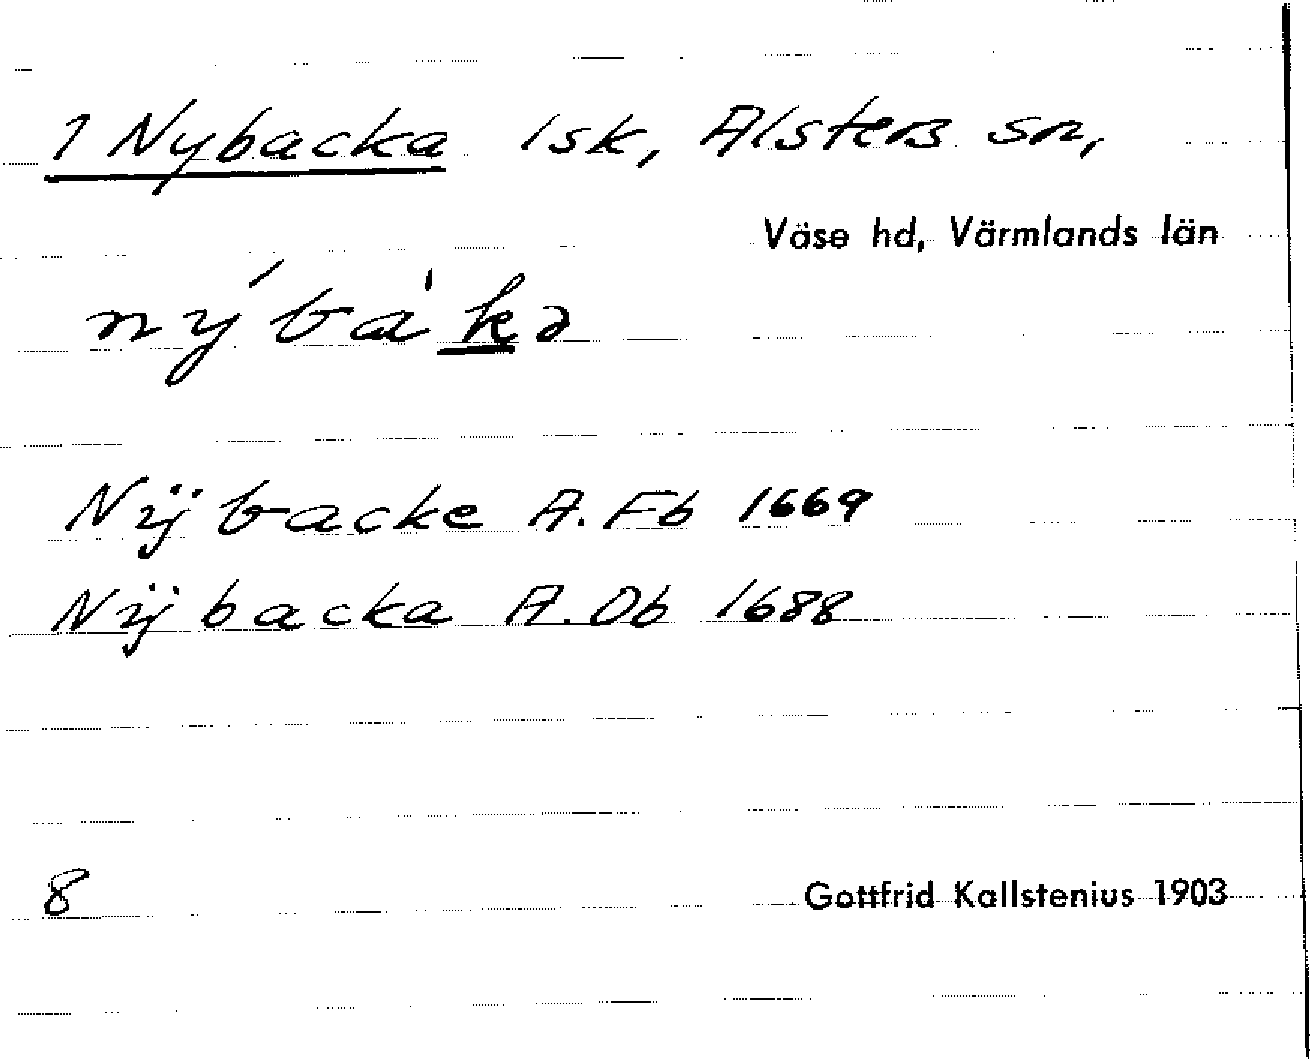 1 Nybacka lsk, Alsters sn,
Väse hd, Värmlands län
nýbàkə
Nÿbacke A. Fb 1669
Nÿbacka A. Db 1688
8
Gottfrid Kallstenius 1903